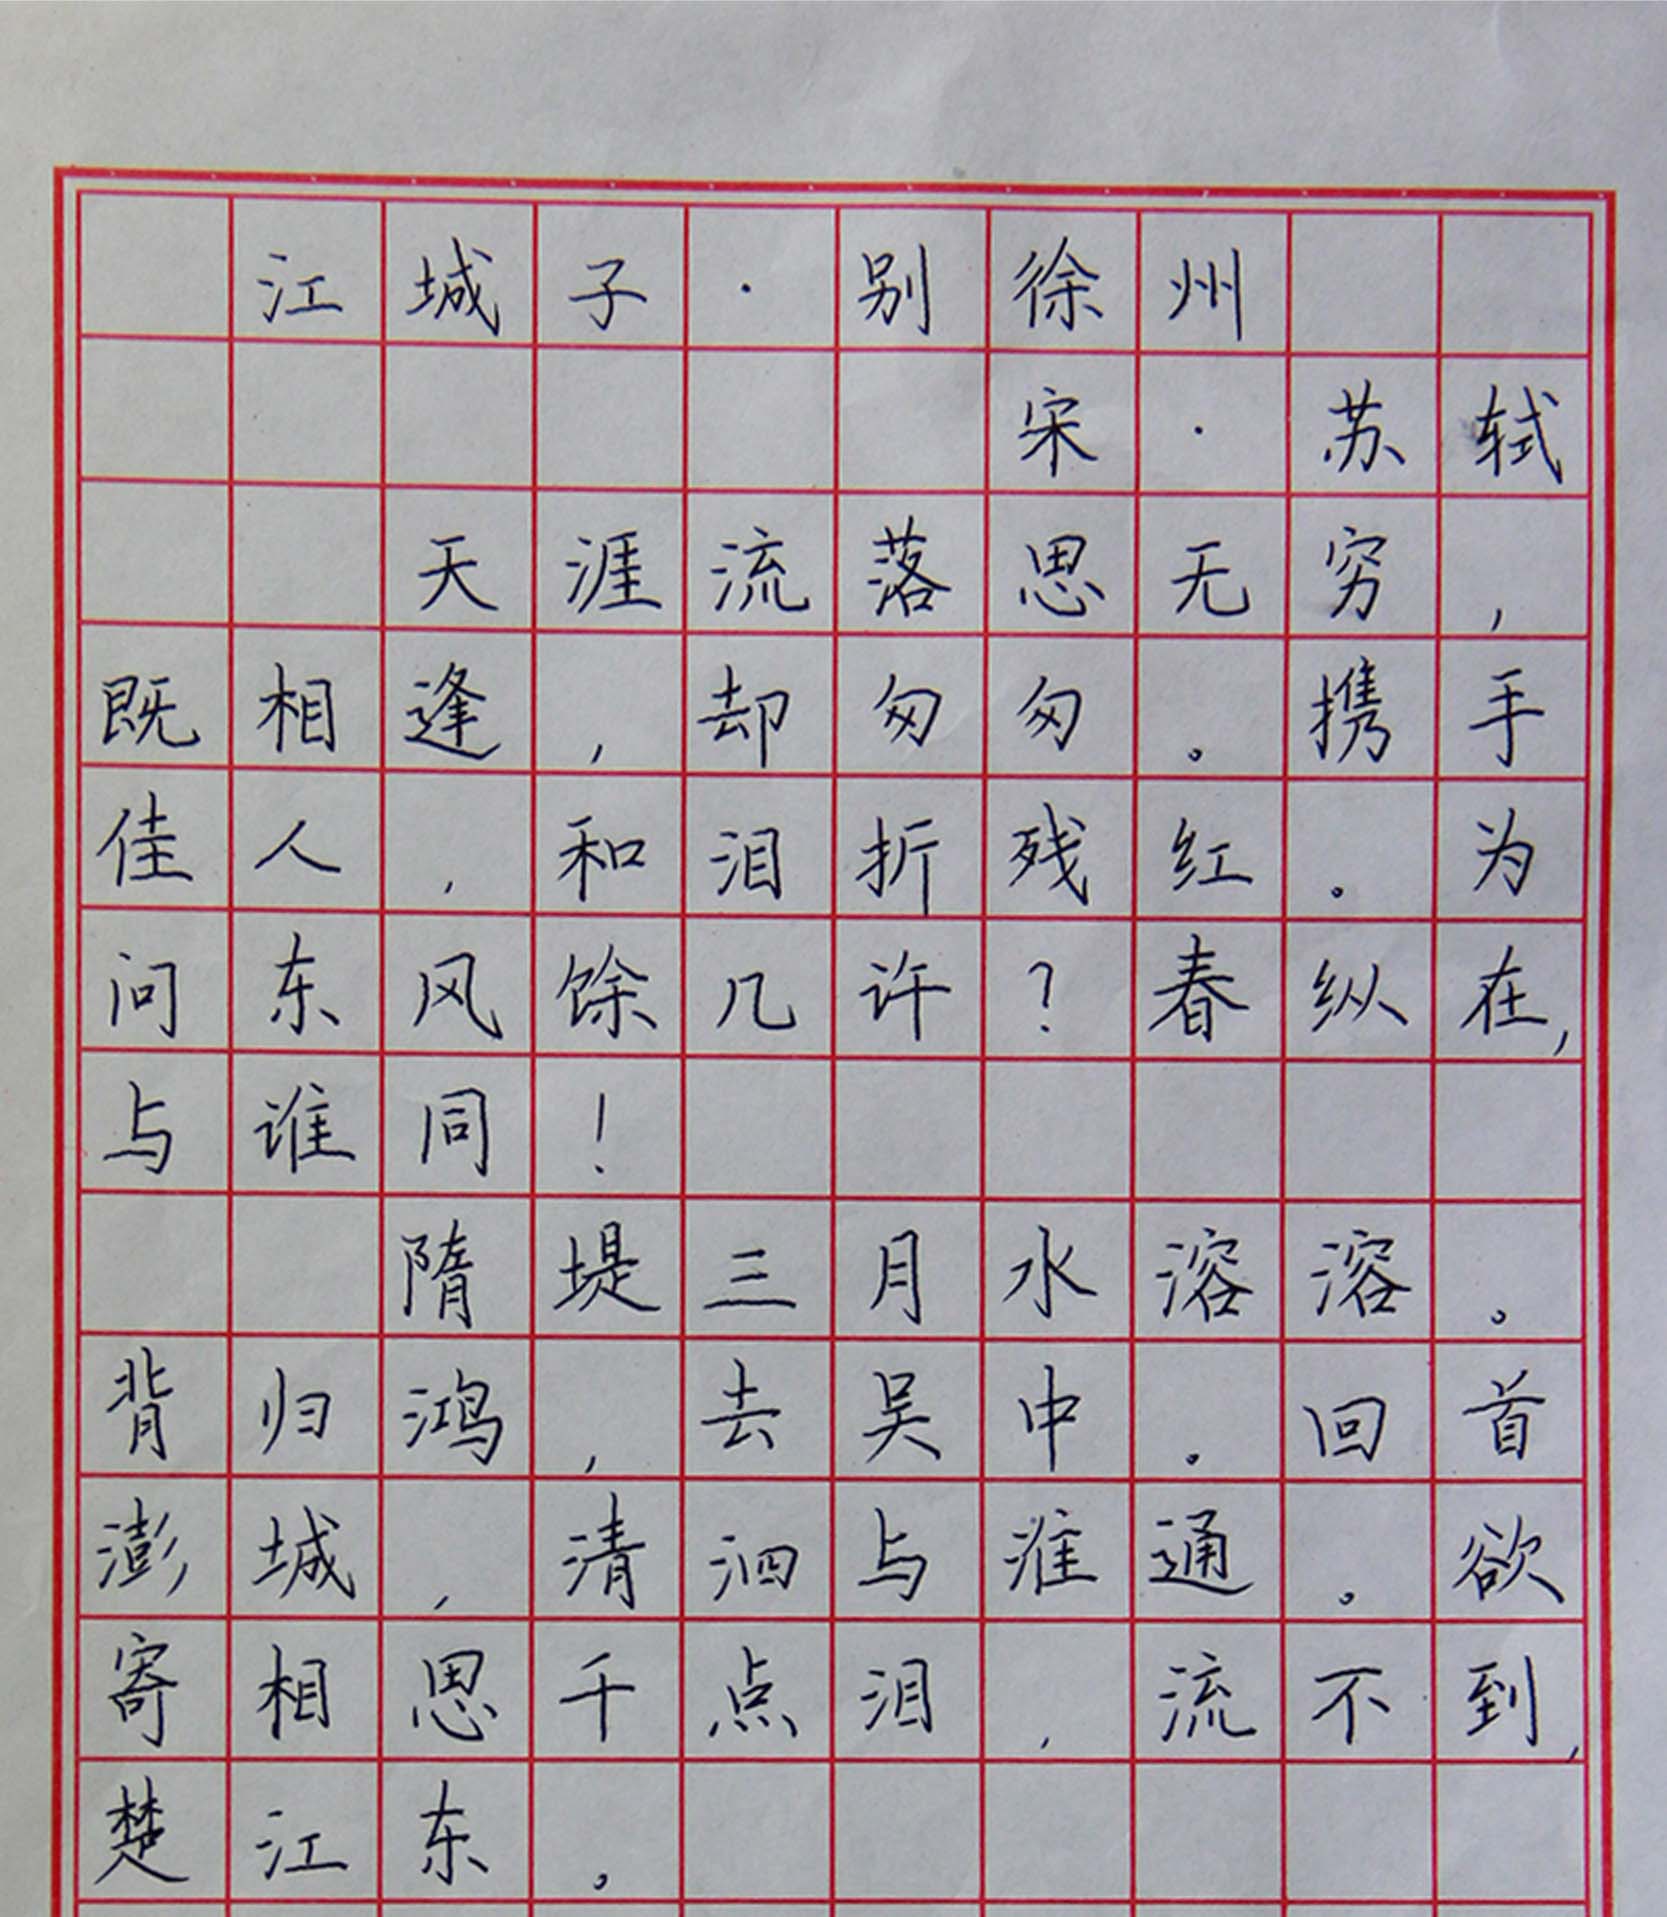 江城子·别徐州
宋·苏轼
天涯流落思无穷,
既相逢,却匆匆。携手
佳人,和泪折残红。为
问东风馀几许?春纵在,
与谁同!
隋堤三月水溶溶。
背归鸿,去吴中。回首
澎城,清泗与淮通。欲
寄相思千点泪,流不到,
楚江东。